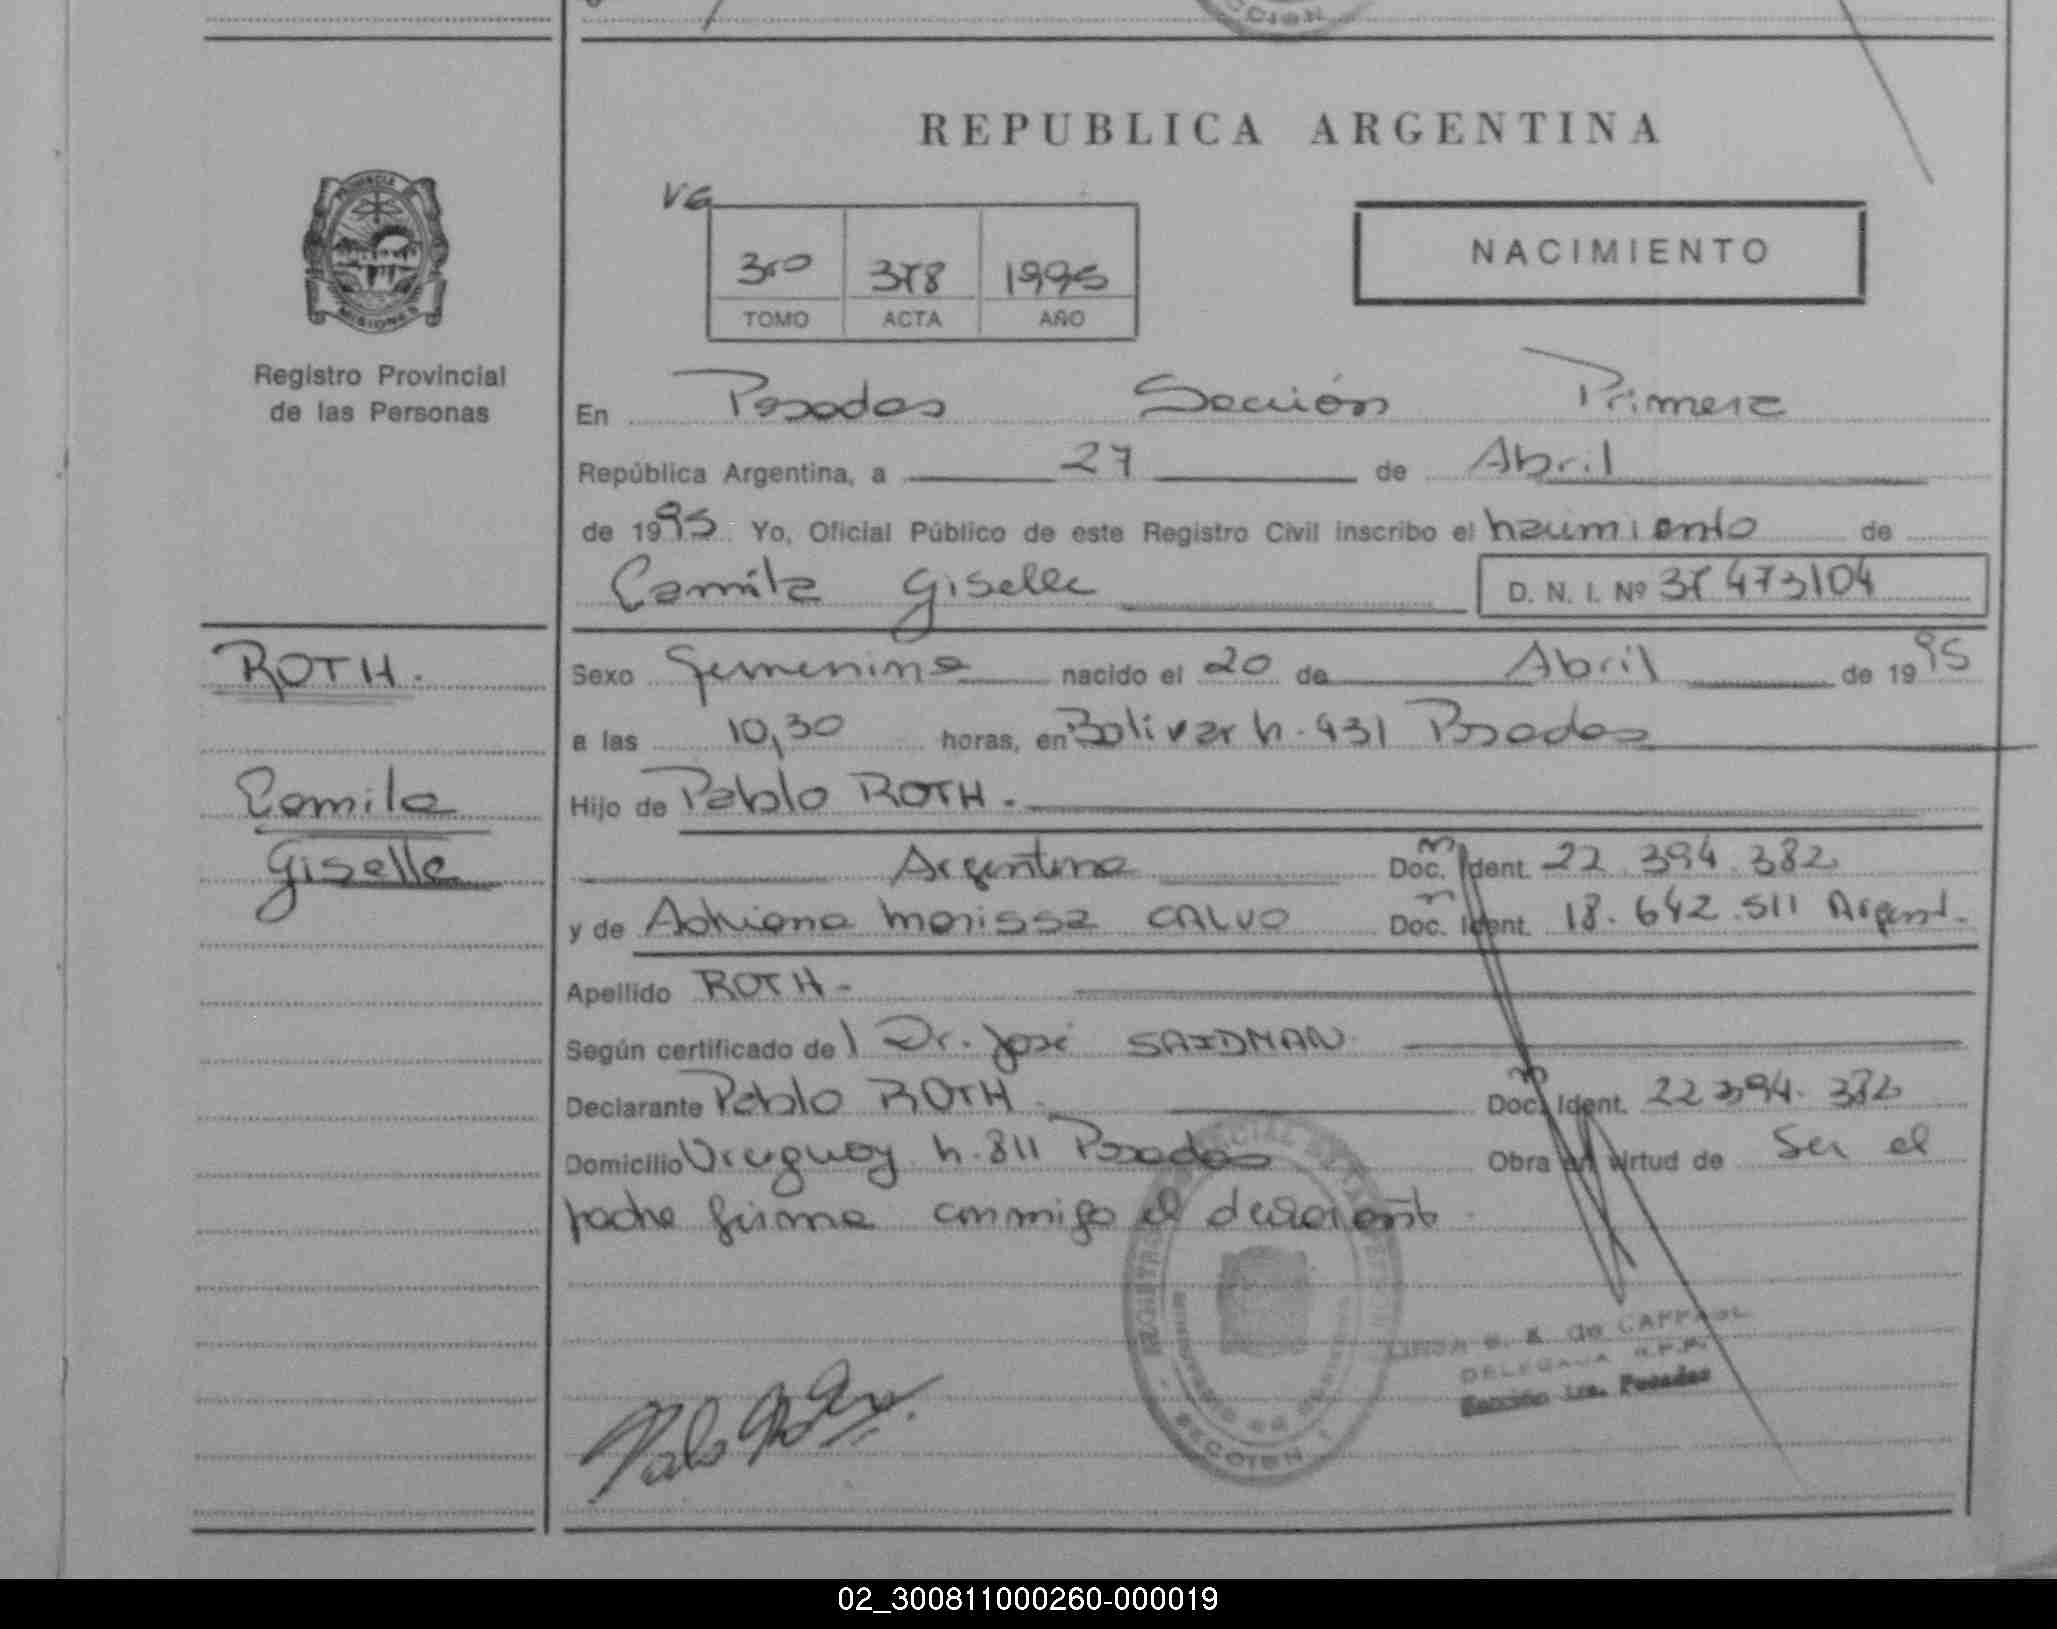 REPUBLICA ARGENTINA
NACIMIENTO
3ro 378 1995
TOMO ACTA AÑO
PROVINCIA
MISIONES
Registro Provincial
de las Personas
En Posadas Sección Primera
República Argentina, a 27 de Abril
de 1995 Yo, Oficial Público de este Registro Civil inscribo el nacimiento de
Camila Giselle D. N. I. Nº 37 473104
ROTH.
Camila
Giselle
Sexo femenino nacido el 20 de Abril de 1995
a las 10,30 horas, en Bolivar n. 431 Posadas
Hijo de Pablo ROTH.
Argentino Doc. Ident. 22.394.382
y de Adriana Marissa CALVO Doc. Ident. 18.642.511 Argent.
Apellido ROTH-
Según certificado del Dr. José SAIDMAN
Declarante Pablo ROTH Doc. Ident. 22394.382
Domicilio Uruguay n. 811 Posadas Obra en virtud de Ser el
padre firma conmigo el declarante
de
DELEGADA R.P.P.
Sección 1ra. Posadas
SECCION 1
02_300811000260-000019